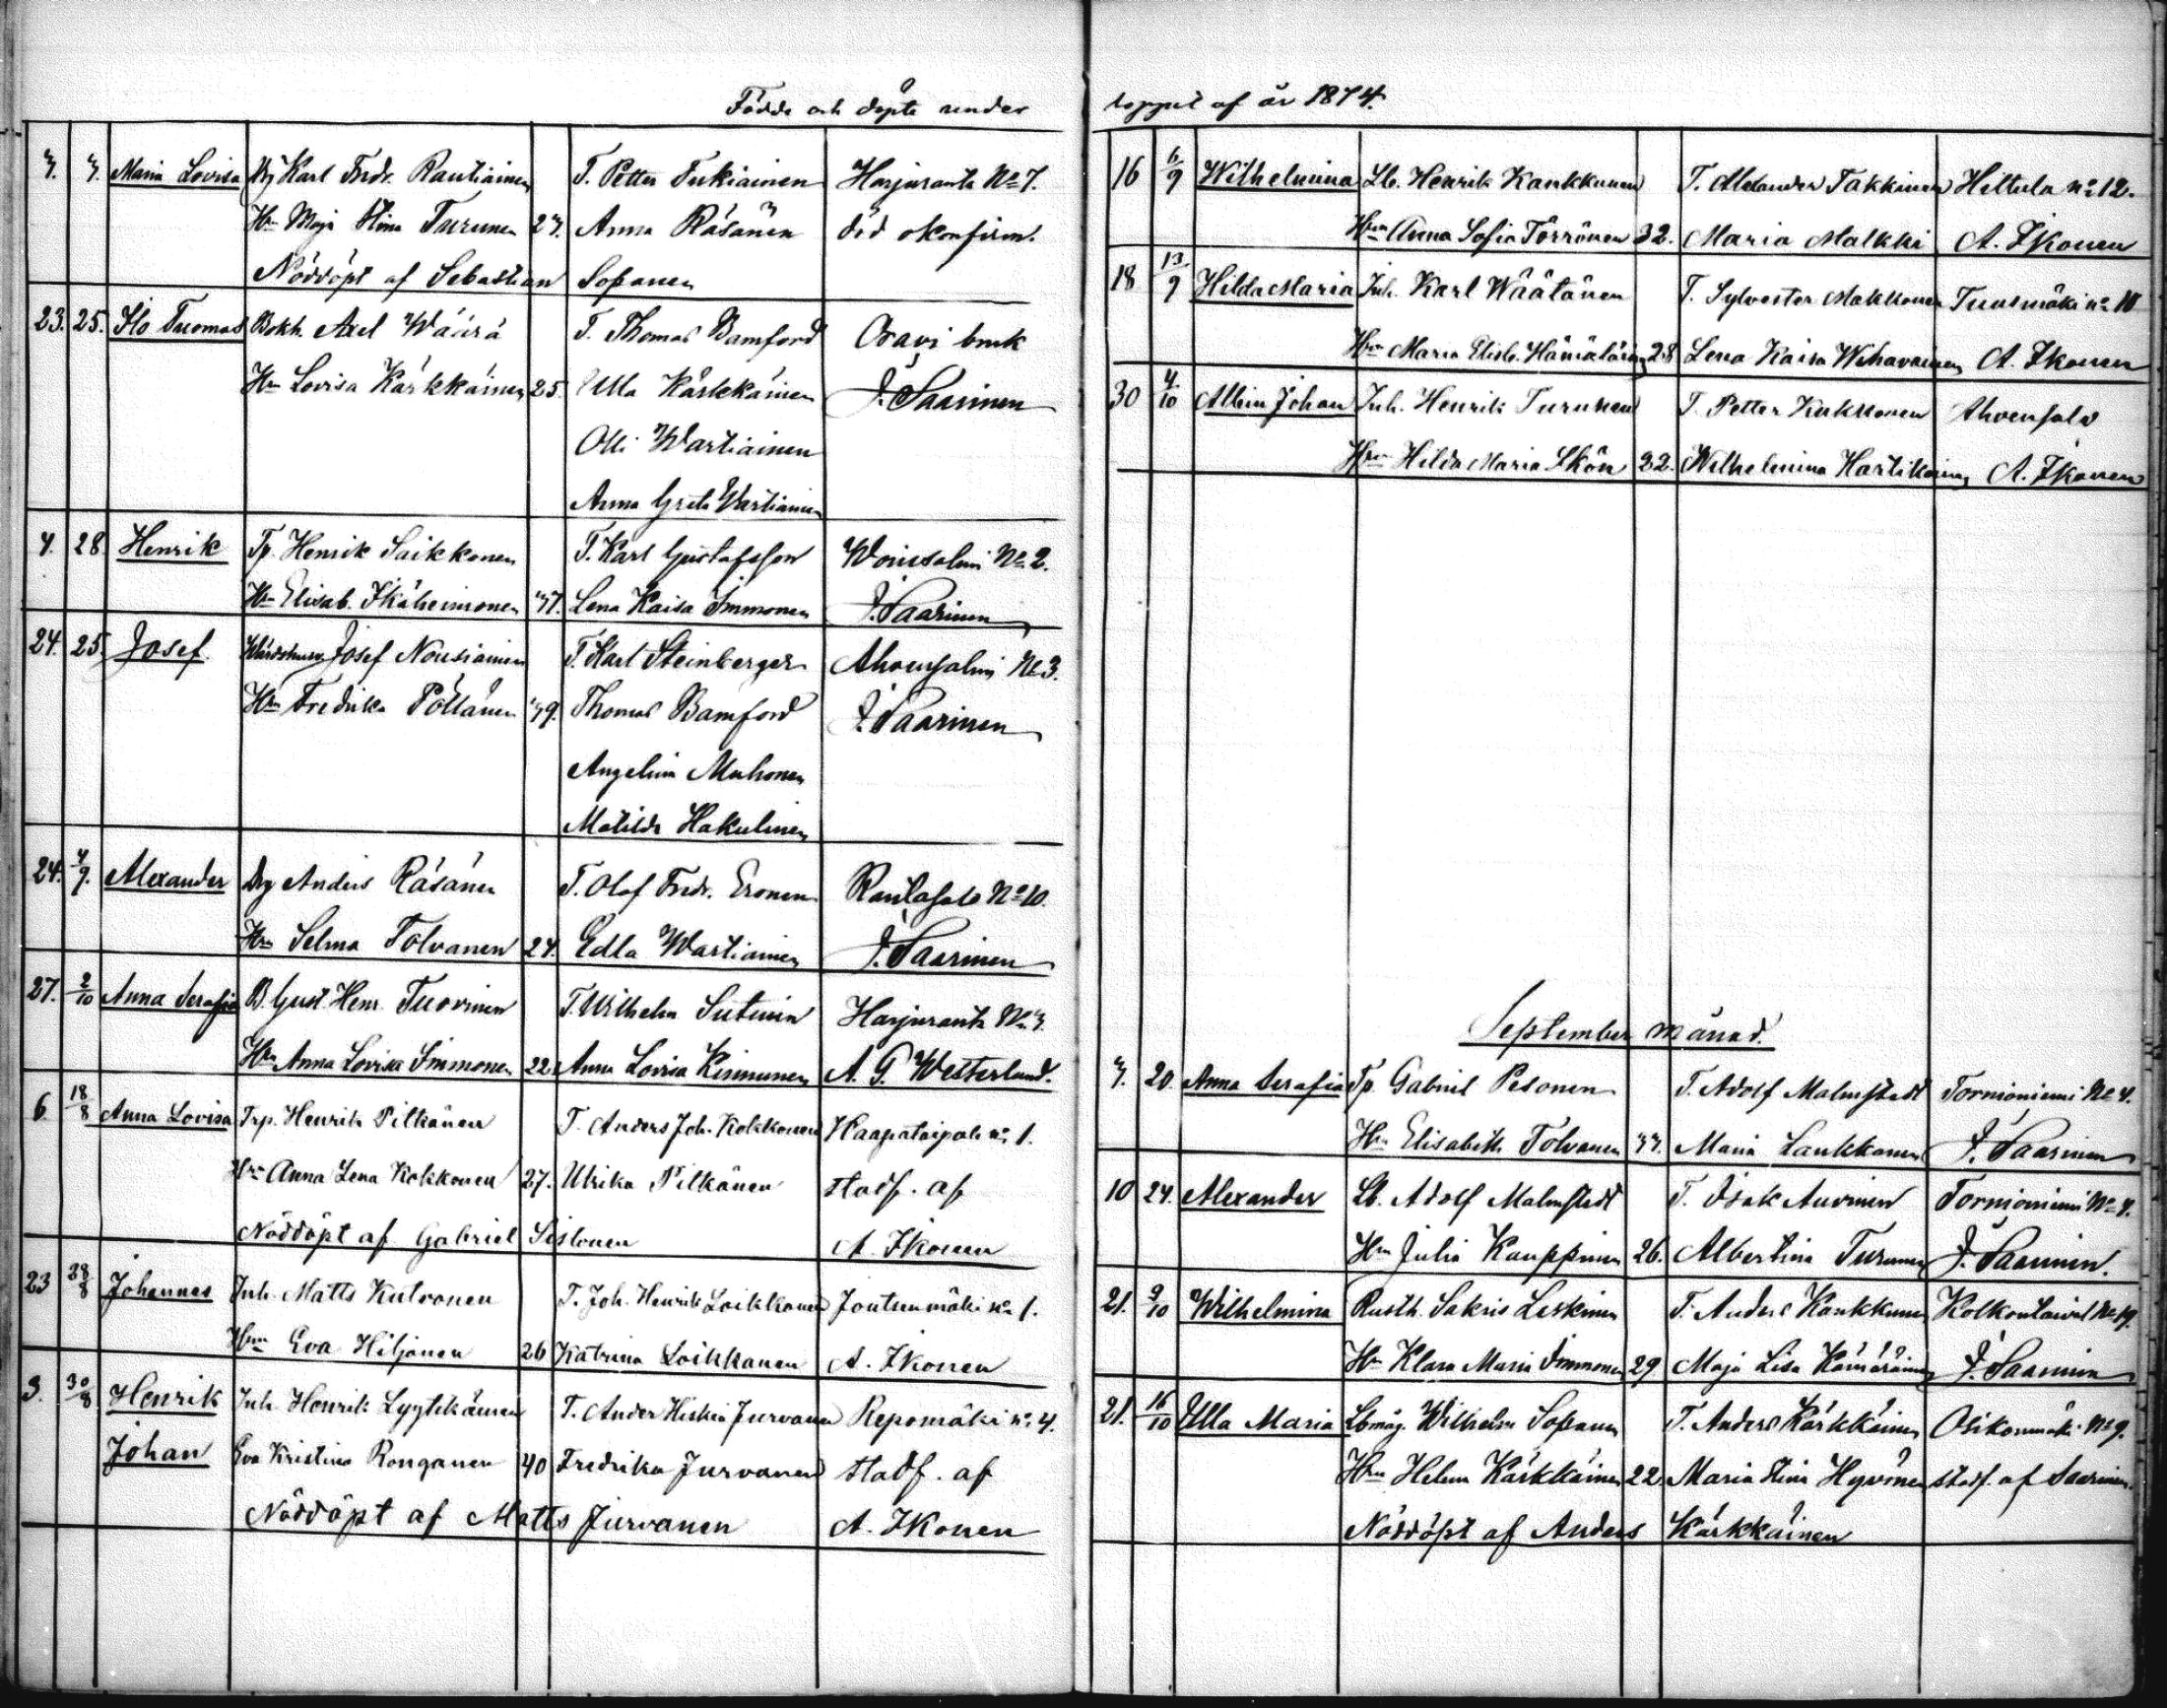 Födde och döpte under loppet af år 1874.
3. 3. Maria Lovisa Drg Karl Fredr. Rautiainen T. Petter Tukiainen Harjuranta No 7.
Hn Maja Stina Turunen 23. Anna Räsänen död okonfirm.
Nöddöpt af Sebastian Sopanen
23. 25. Ilo Tuomas Bokh. Axel Wäärä T. Thomas Bamford Oravi bruk
Hn Lovisa Kärkkäinen 25. Ulla Kärkkäinen J. Saarinen
Olli Wartiainen
Anna Greta Wartiainen
4. 28 Henrik Tp. Henrik Saikkonen T. Karl Gustafsson Woinsalmi No 2.
Hn Elisab. Ikäheimonen 37. Lena Kaisa Immonen J. Saarinen
24. 25. Josef Josef Nousiainen T. Karl Steinberger Ahvensalmi No 3.
Hn Fredrika Pöllänen 39. Thomas Bamford J. Saarinen
Angelina Muhonen
Matilda Hakulinen
24. 4/9. Alexander Drg Anders Räsänen T. Olof Fredr. Eronen Rautasalo No 10.
Hn Selma Tolvanen 24. Edla Wartiainen J. Saarinen
27. 2/10 Anna Serafia B. Gust. Henr. Tuovinen T. Wilhelm Sutinen Harjuranta No 3.
Hn Anna Lovisa Immonen 22. Anna Lovisa Kinnunen A. G. Westerlund.
6. 18/8 Anna Lovisa Trp. Henrik Pitkänen T. Anders Joh. Kokkonen Haapataipale no 1.
Hrn Anna Lena Kokkonen 27. Ulrika Pitkänen stadf. af
Nöddöpt af Gabriel Sistonen A. Ikonen
23 28/8 Johannes Inh. Matts Kutvonen T. Joh. Henrik Loikkanen Joutsenmäki no 1.
Hrn Eva Hiljanen 26 Katrina Loikkanen A. Ikonen
3. 30/8 Henrik Inh. Henrik Lyytikäinen T. Ander Hiskia Jurvanen Repomäki no. 4.
Johan Eva Kristina Ronganen 40 Fredrika Jurvanen stadf. af
Nöddöpt af Matts Jurvanen A. Ikonen
16 6/9 Wilhelmina Lb. Henrik Kaukkunen T. Alexander Takkinen Hiltula no 12.
Hrn Anna Sofia Törrönen 32. Maria Malkki A. Ikonen
18 13/9 Hilda Maria Inh. Karl Wäätänen T. Sylvester Makkonen Tuusmäki no 10
Hrn Maria Elisb. Hämäläinen 28 Lena Kaisa Wihavainen A. Ikonen
30 4/10 Albin Johan Inh. Henrik Turunen T. Petter Kukkonen Ahvensalo
Hrn Hilda Maria Skön 22. Wilhelmina Hartikainen A. Ikonen
September månad.
3. 20. Anna Serafia Tp. Gabriel Pesonen T. Adolf Malmstedt Tornioniemi No 4.
Hn Elisabeth Tolvanen 33. Maria Laukkanen J. Saarinen
10 24. Alexander Lb. Adolf Malmstedt T. Isak Auvinen Tornioniemi No 4.
Hn Julia Kauppinen 26. Albertina Turunen J. Saarinen.
21. 9/10 Wilhelmina Rusth. Sakris Leskinen T. Anders Kaukkunen Kolkontaival No 19.
Hn Klara Maria Immonen 29. Maja Lisa Kämäräinen J. Saarinen
21. 16/10 Ulla Maria Lbmåg. Wilhelm Sopanen T. Anders Kärkkäinen Osikonmäki No 9.
Hrn Helena Kärkkäinen 22. Maria Stina Hyvönen stadf. af Saarinen.
Nöddöpt af Anders Kärkkäinen